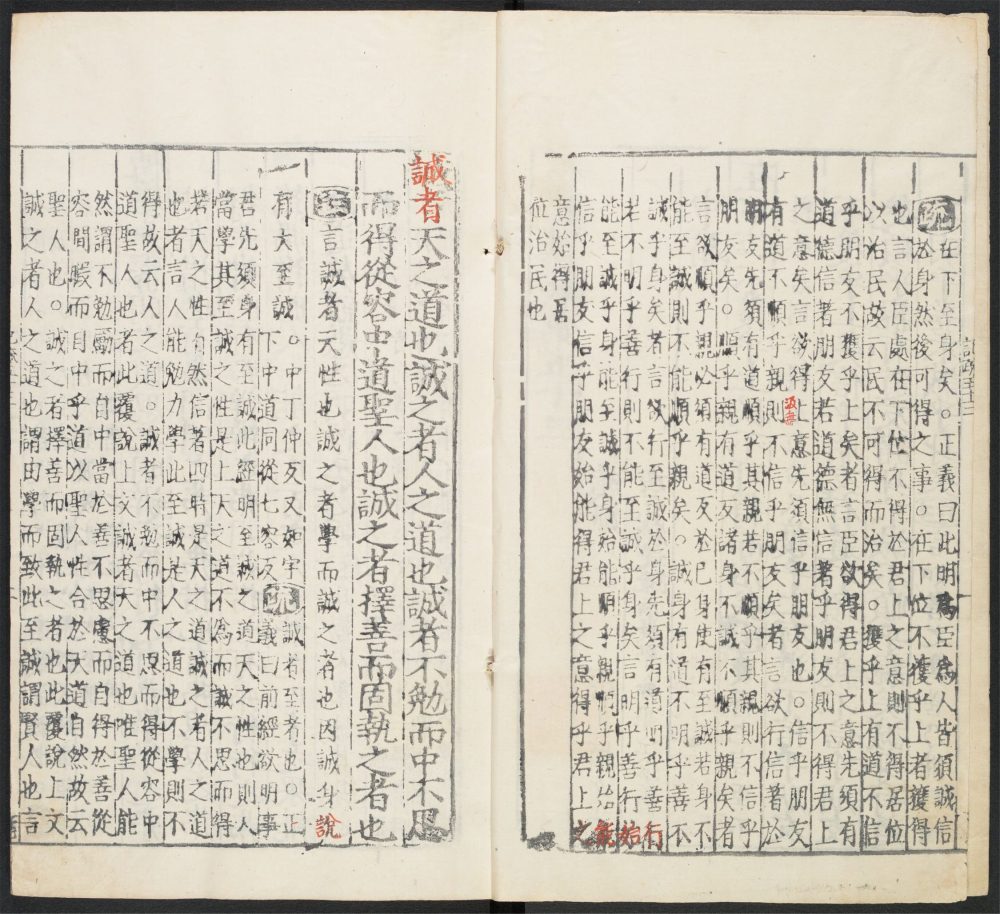 疏在下至身矣。正義曰此明爲臣爲人皆須誠信
於身然後可得之事。在下位不獲乎上者獲得
也言人臣處在下位不得於君上之意則不得居位
以治民故云民不可得而治矣。獲乎上有道不信
乎朋友不獲乎上矣者言臣欲得君上之意先須有
道德信著朋友若道德無信著乎朋友則不得君上
之意矣言欲得上意先須信乎朋友也。信乎朋友
有道不順乎親則不信乎朋友矣者言欲行信著於
朋友先須有道順乎其親若不順乎其親則不信乎
朋友矣。順乎親有道反諸身不誠不順乎親者
言欲順乎親必須有道反於已身使有至誠若身不
能至誠則不能順乎親矣。誠身有道不明乎善不
誠乎身矣者言欲行至誠於身先須有道明乎善行
若不明乎善行則不能至誠乎身矣言明乎善行始
能至誠乎身能至誠乎身始能順乎親順乎親始能
信乎朋友信乎朋友始能得君上之意得乎君上之
意始得居
位治民也
誠者天之道也誠之者人之道也誠者不勉而中不思
而得從容中道聖人也誠之者擇善而固執之者也
注言誠者天性也誠之者學而誠之者也因誠身說
有大至誠。中丁仲反又如字誠者至者也。正
下中道同從七容反疏義曰前經欲明事
君先須身有至誠此經明至誠之道天之性也則人
當學其至誠之性是上天之道不爲而誠不思而得
若天之性自然信著四時是天之道誠之者人之道
也者言人能勉力學此至誠是人之道也不學則不
得故云人之道。誠者不勉而中不思而得從容中
道聖人也者此覆說上文誠者天之道也唯聖人能
然謂不勉勵而自中當於善不思慮而自得於善從
容間暇而自中乎道以聖人性合於天道自然故云
聖人也。誠之者擇善而固執之者也此覆說上文
誠之者人之道也謂由學而致此至誠謂賢人也言